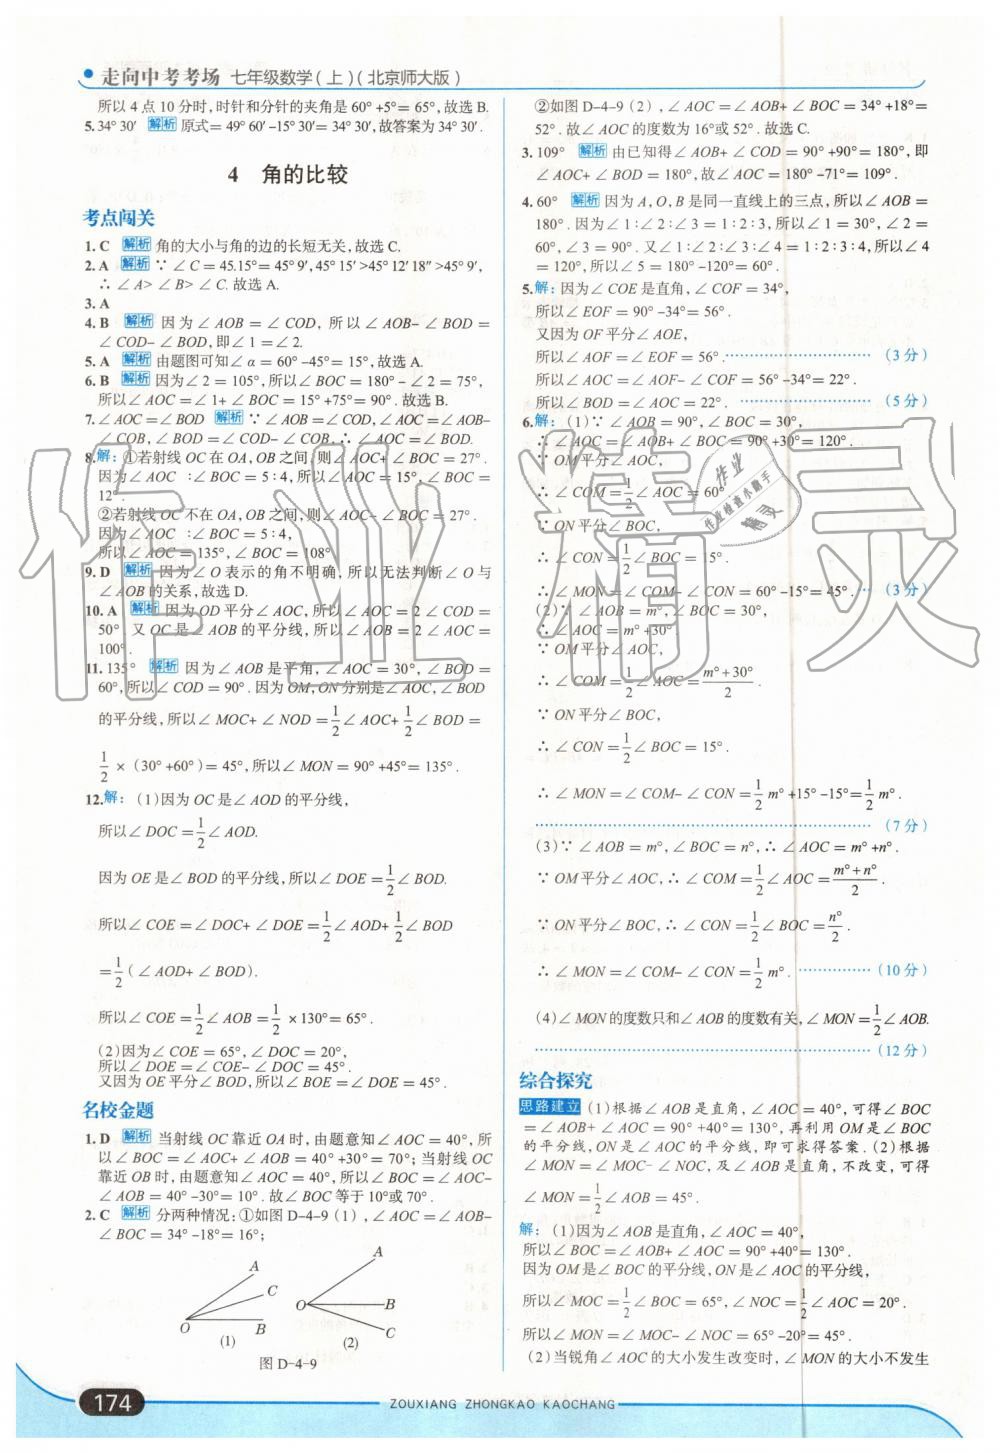 走向中考考场 七年级数学(上)(北京师大版)
所以4点10分时,时针和分针的夹角是60°+5°=65°,故选B.
5.34°30′ 解析 原式=49°60′-15°30′=34°30′,故答案为34°30′.
4 角的比较
考点闯关
1.C 解析 角的大小与角的边的长短无关,故选C.
2.A 解析 ∵∠C=45.15°=45°9′,45°15′>45°12′18″>45°9′,
∴∠A>∠B>∠C.故选A.
3.A
4.B 解析 因为∠AOB=∠COD,所以∠AOB-∠BOD=
∠COD-∠BOD,即∠1=∠2.
5.A 解析 由题图可知∠α=60°-45°=15°,故选A.
6.B 解析 因为∠2=105°,所以∠BOC=180°-∠2=75°,
所以∠AOC=∠1+∠BOC=15°+75°=90°.故选B.
7.∠AOC=∠BOD 解析 ∵∠AOB=∠COD,∠AOC=∠AOB-
∠COB,∠BOD=∠COD-∠COB,∴∠AOC=∠BOD.
8.解:①若射线OC在OA,OB之间,则∠AOC+∠BOC=27°.
因为∠AOC:∠BOC=5:4,所以∠AOC=15°,∠BOC=
12°.
②若射线OC不在OA,OB之间,则∠AOC-∠BOC=27°.
因为∠AOC:∠BOC=5:4,
所以∠AOC=135°,∠BOC=108°.
9.D 解析 因为∠O表示的角不明确,所以无法判断∠O与
∠AOB的关系,故选D.
10.A 解析 因为OD平分∠AOC,所以∠AOC=2∠COD=
50°.又OC是∠AOB的平分线,所以∠AOB=2∠AOC=
100°.
11.135° 解析 因为∠AOB是平角,∠AOC=30°,∠BOD=
60°,所以∠COD=90°.因为OM,ON分别是∠AOC,∠BOD
的平分线,所以∠MOC+∠NOD=1/2∠AOC+1/2∠BOD=
1/2×(30°+60°)=45°,所以∠MON=90°+45°=135°.
12.解:(1)因为OC是∠AOD的平分线,
所以∠DOC=1/2∠AOD.
因为OE是∠BOD的平分线,所以∠DOE=1/2∠BOD.
所以∠COE=∠DOC+∠DOE=1/2∠AOD+1/2∠BOD
=1/2(∠AOD+∠BOD).
所以∠COE=1/2∠AOB=1/2×130°=65°.
(2)因为∠COE=65°,∠DOC=20°,
所以∠DOE=∠COE-∠DOC=45°.
又因为OE平分∠BOD,所以∠BOE=∠DOE=45°.
名校金题
1.D 解析 当射线OC靠近OA时,由题意知∠AOC=40°,所
以∠BOC=∠AOC+∠AOB=40°+30°=70°;当射线OC
靠近OB时,由题意知∠AOC=40°,所以∠BOC=∠AOC-
∠AOB=40°-30°=10°.故∠BOC等于10°或70°.
2.C 解析 分两种情况:①如图D-4-9(1),∠AOC=∠AOB-
∠BOC=34°-18°=16°;
A
C
O
B
(1)
A
O
B
C
(2)
图D-4-9
②如图D-4-9(2),∠AOC=∠AOB+∠BOC=34°+18°=
52°.故∠AOC的度数为16°或52°.故选C.
3.109° 解析 由已知得∠AOB+∠COD=90°+90°=180°,即
∠AOC+∠BOD=180°,故∠AOC=180°-71°=109°.
4.60° 解析 因为A,O,B是同一直线上的三点,所以∠AOB=
180°.因为∠1:∠2:∠3=1:2:3,所以∠1=30°,∠2=
60°,∠3=90°.又∠1:∠2:∠3:∠4=1:2:3:4,所以∠4
=120°,所以∠5=180°-120°=60°.
5.解:因为∠COE是直角,∠COF=34°,
所以∠EOF=90°-34°=56°.
又因为OF平分∠AOE,
所以∠AOF=∠EOF=56°.……(3分)
所以∠AOC=∠AOF-∠COF=56°-34°=22°.
所以∠BOD=∠AOC=22°.……(5分)
6.解:(1)∵∠AOB=90°,∠BOC=30°,
∴∠AOC=∠AOB+∠BOC=90°+30°=120°.
∵OM平分∠AOC,
∴∠COM=1/2∠AOC=60°.
∵ON平分∠BOC,
∴∠CON=1/2∠BOC=15°.
∴∠MON=∠COM-∠CON=60°-15°=45°.…(3分)
(2)∵∠AOB=m°,∠BOC=30°,
∴∠AOC=m°+30°.
∵OM平分∠AOC,
∴∠COM=1/2∠AOC=(m°+30°)/2.
∵ON平分∠BOC,
∴∠CON=1/2∠BOC=15°.
∴∠MON=∠COM-∠CON=1/2m°+15°-15°=1/2m°.
……(7分)
(3)∵∠AOB=m°,∠BOC=n°,∴∠AOC=m°+n°.
∵OM平分∠AOC,∴∠COM=1/2∠AOC=(m°+n°)/2.
∵ON平分∠BOC,∴∠CON=1/2∠BOC=n°/2.
∴∠MON=∠COM-∠CON=1/2m°.……(10分)
(4)∠MON的度数只和∠AOB的度数有关,∠MON=1/2∠AOB.
……(12分)
综合探究
思路建立 (1)根据∠AOB是直角,∠AOC=40°,可得∠BOC
=∠AOB+∠AOC=90°+40°=130°,再利用OM是∠BOC
的平分线,ON是∠AOC的平分线,即可求得答案.(2)根据
∠MON=∠MOC-∠NOC,及∠AOB是直角,不改变,可得
∠MON=1/2∠AOB=45°.
解:(1)因为∠AOB是直角,∠AOC=40°,
所以∠BOC=∠AOB+∠AOC=90°+40°=130°.
因为OM是∠BOC的平分线,ON是∠AOC的平分线,
所以∠MOC=1/2∠BOC=65°,∠NOC=1/2∠AOC=20°.
所以∠MON=∠MOC-∠NOC=65°-20°=45°.
(2)当锐角∠AOC的大小发生改变时,∠MON的大小不发生
174
ZOUXIANG ZHONGKAO KAOCHANG
作业精灵
作业
作业检查小助手
精灵